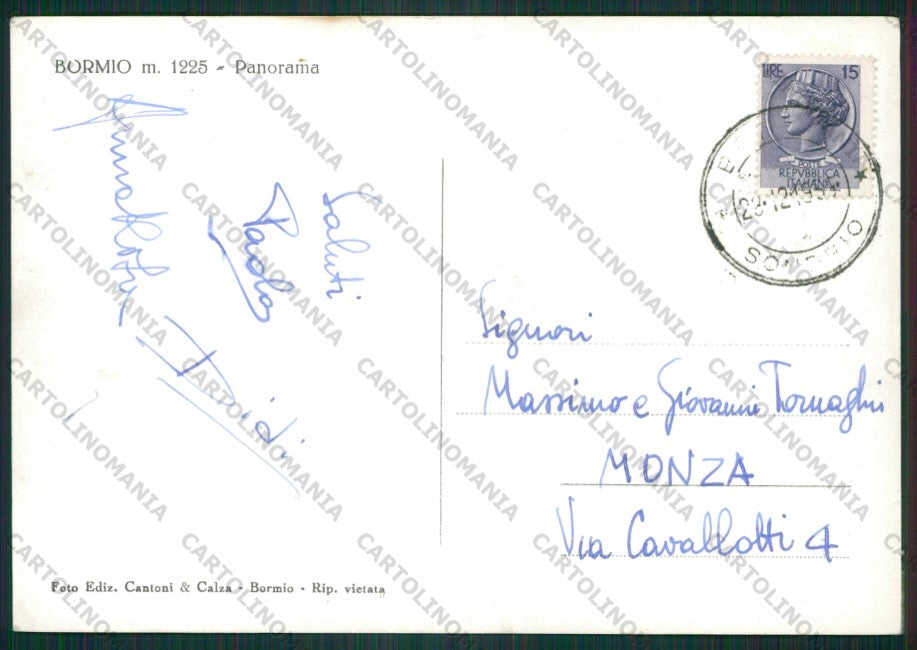 BORMIO m. 1225 - Panorama
Saluti
Paola
Didi
LIRE 15
POSTE
REPVBBLICA
ITALIANA
SONDRIO
Signori
Massimo e Giovanni Tornaghi
MONZA
Via Cavallotti 4
Foto Ediz. Cantoni & Calza - Bormio - Rip. vietata
CARTOLINOMANIA